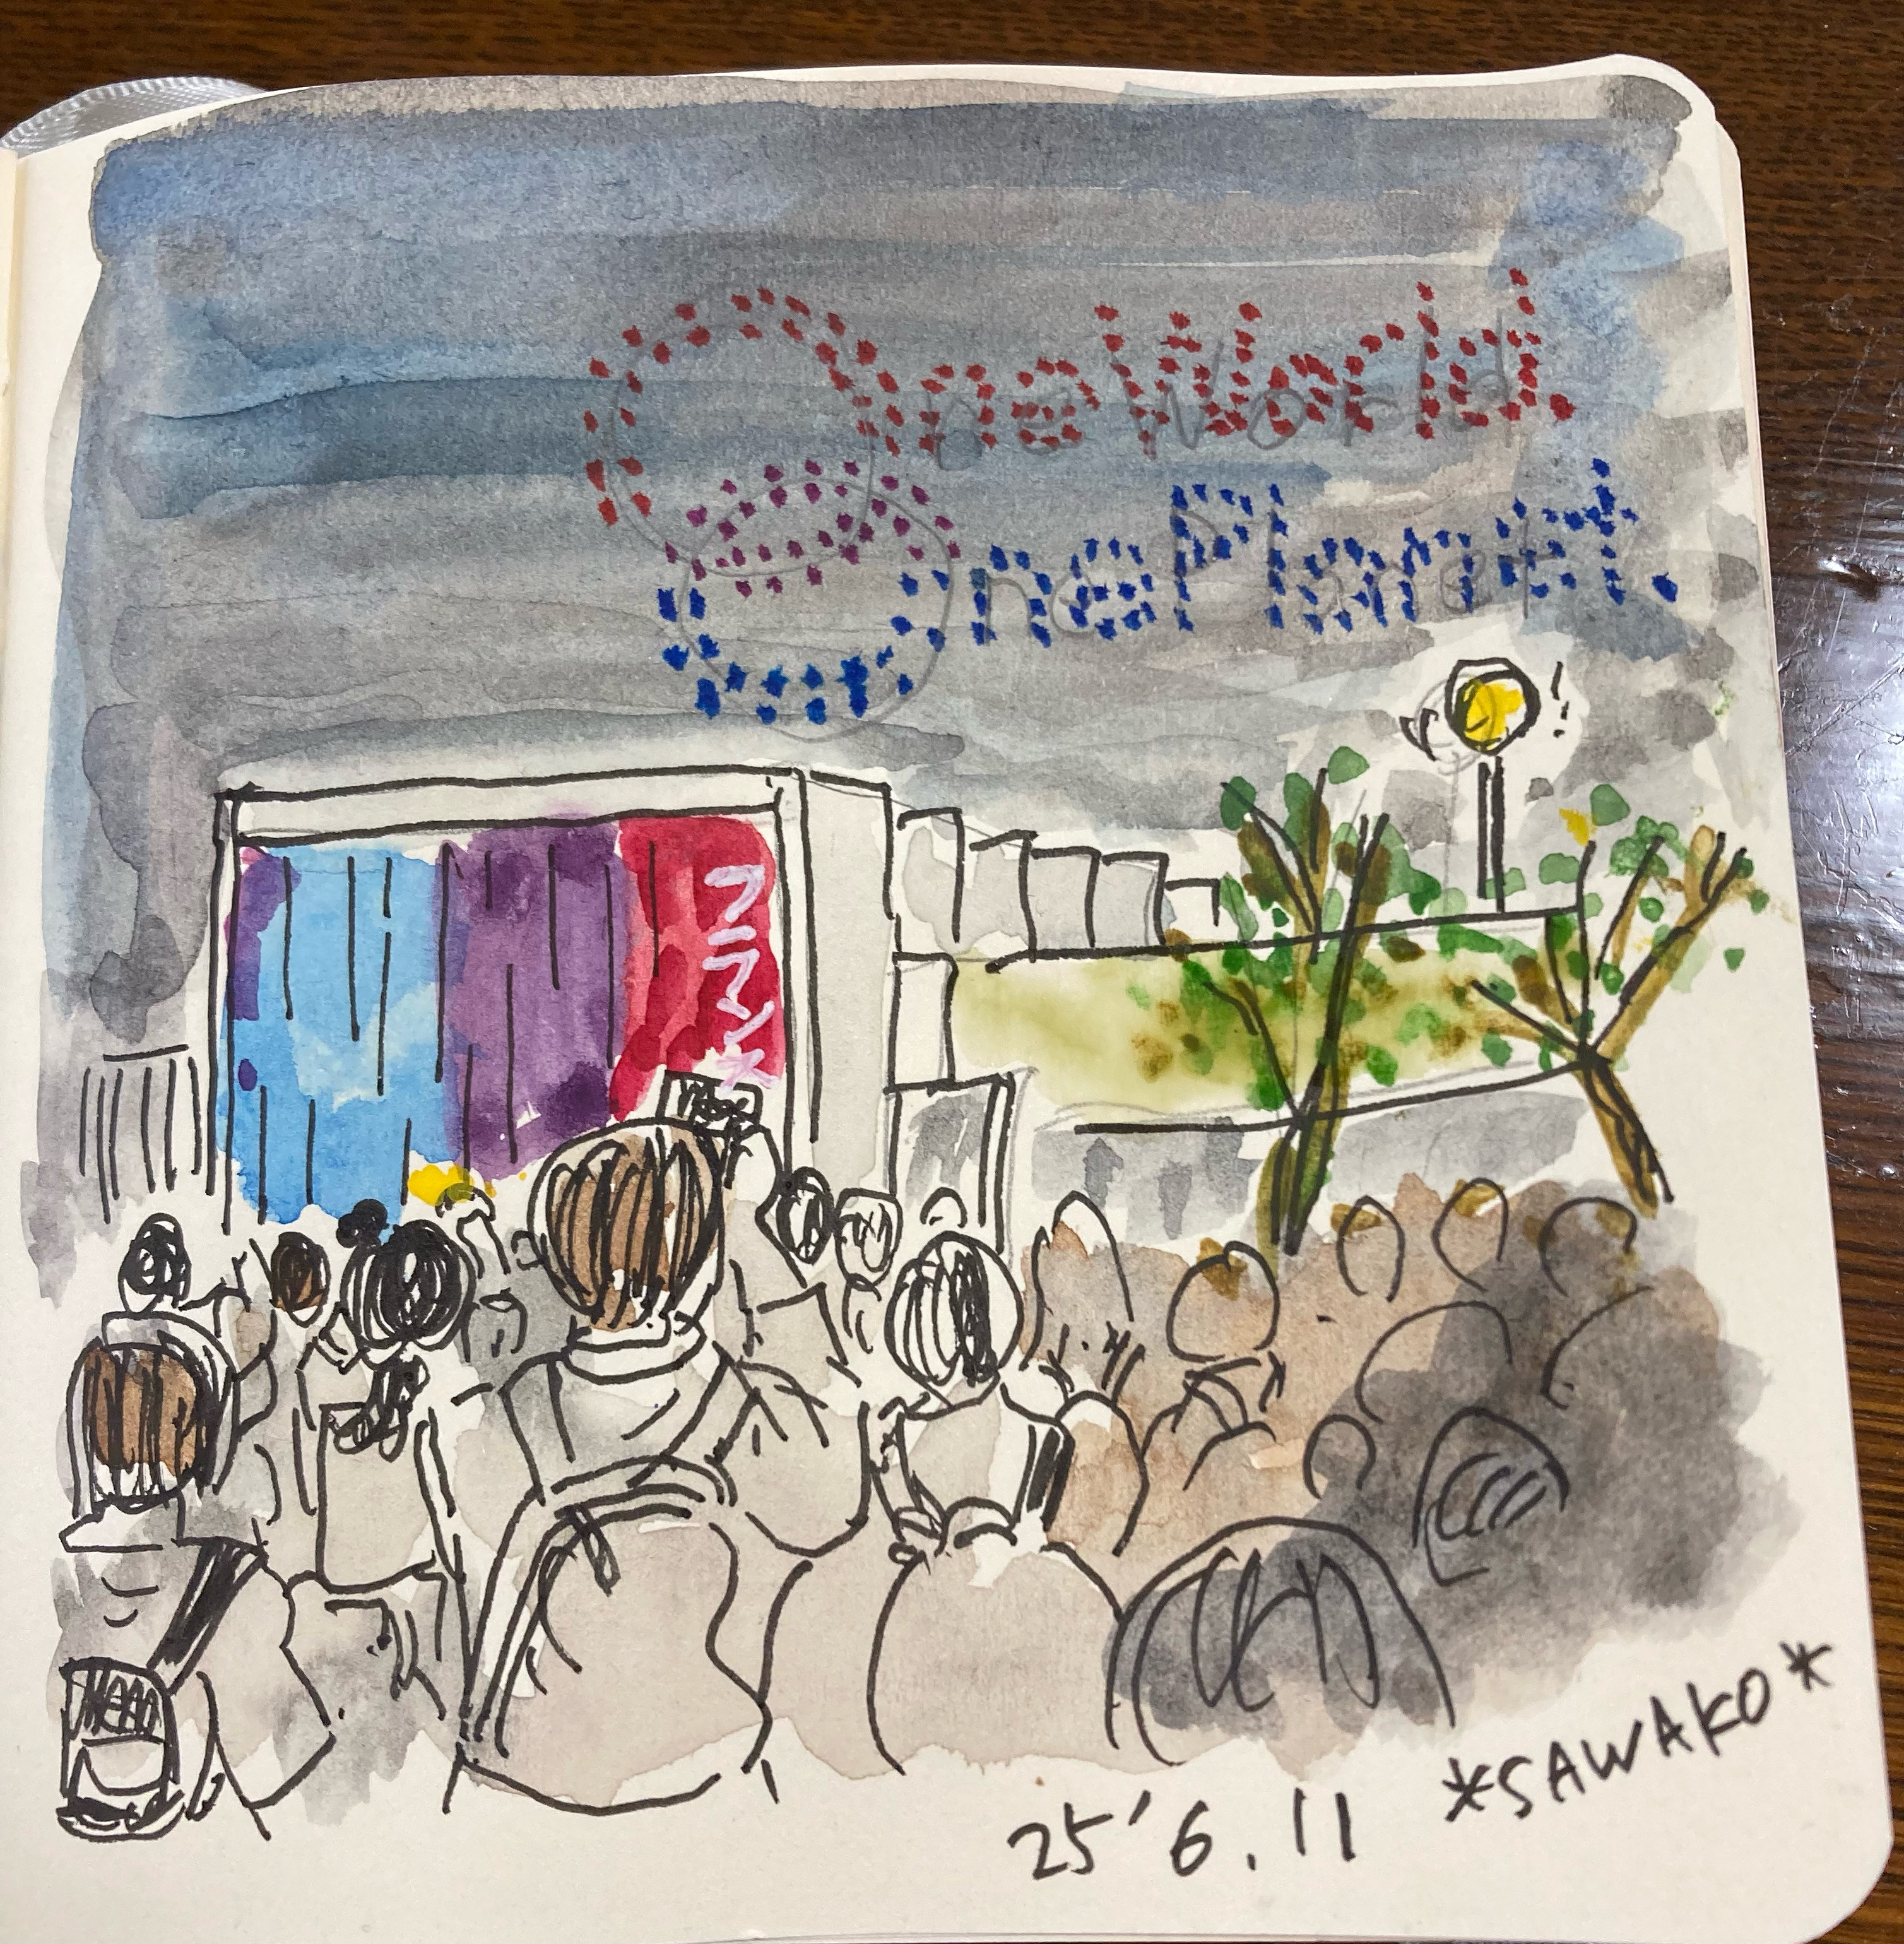 One World.
One Planet.
フランス
25'6.11
*SAWAKO*